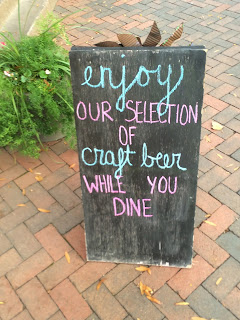 enjoy
OUR SELECTION
OF
craft beer
WHILE YOU
DINE